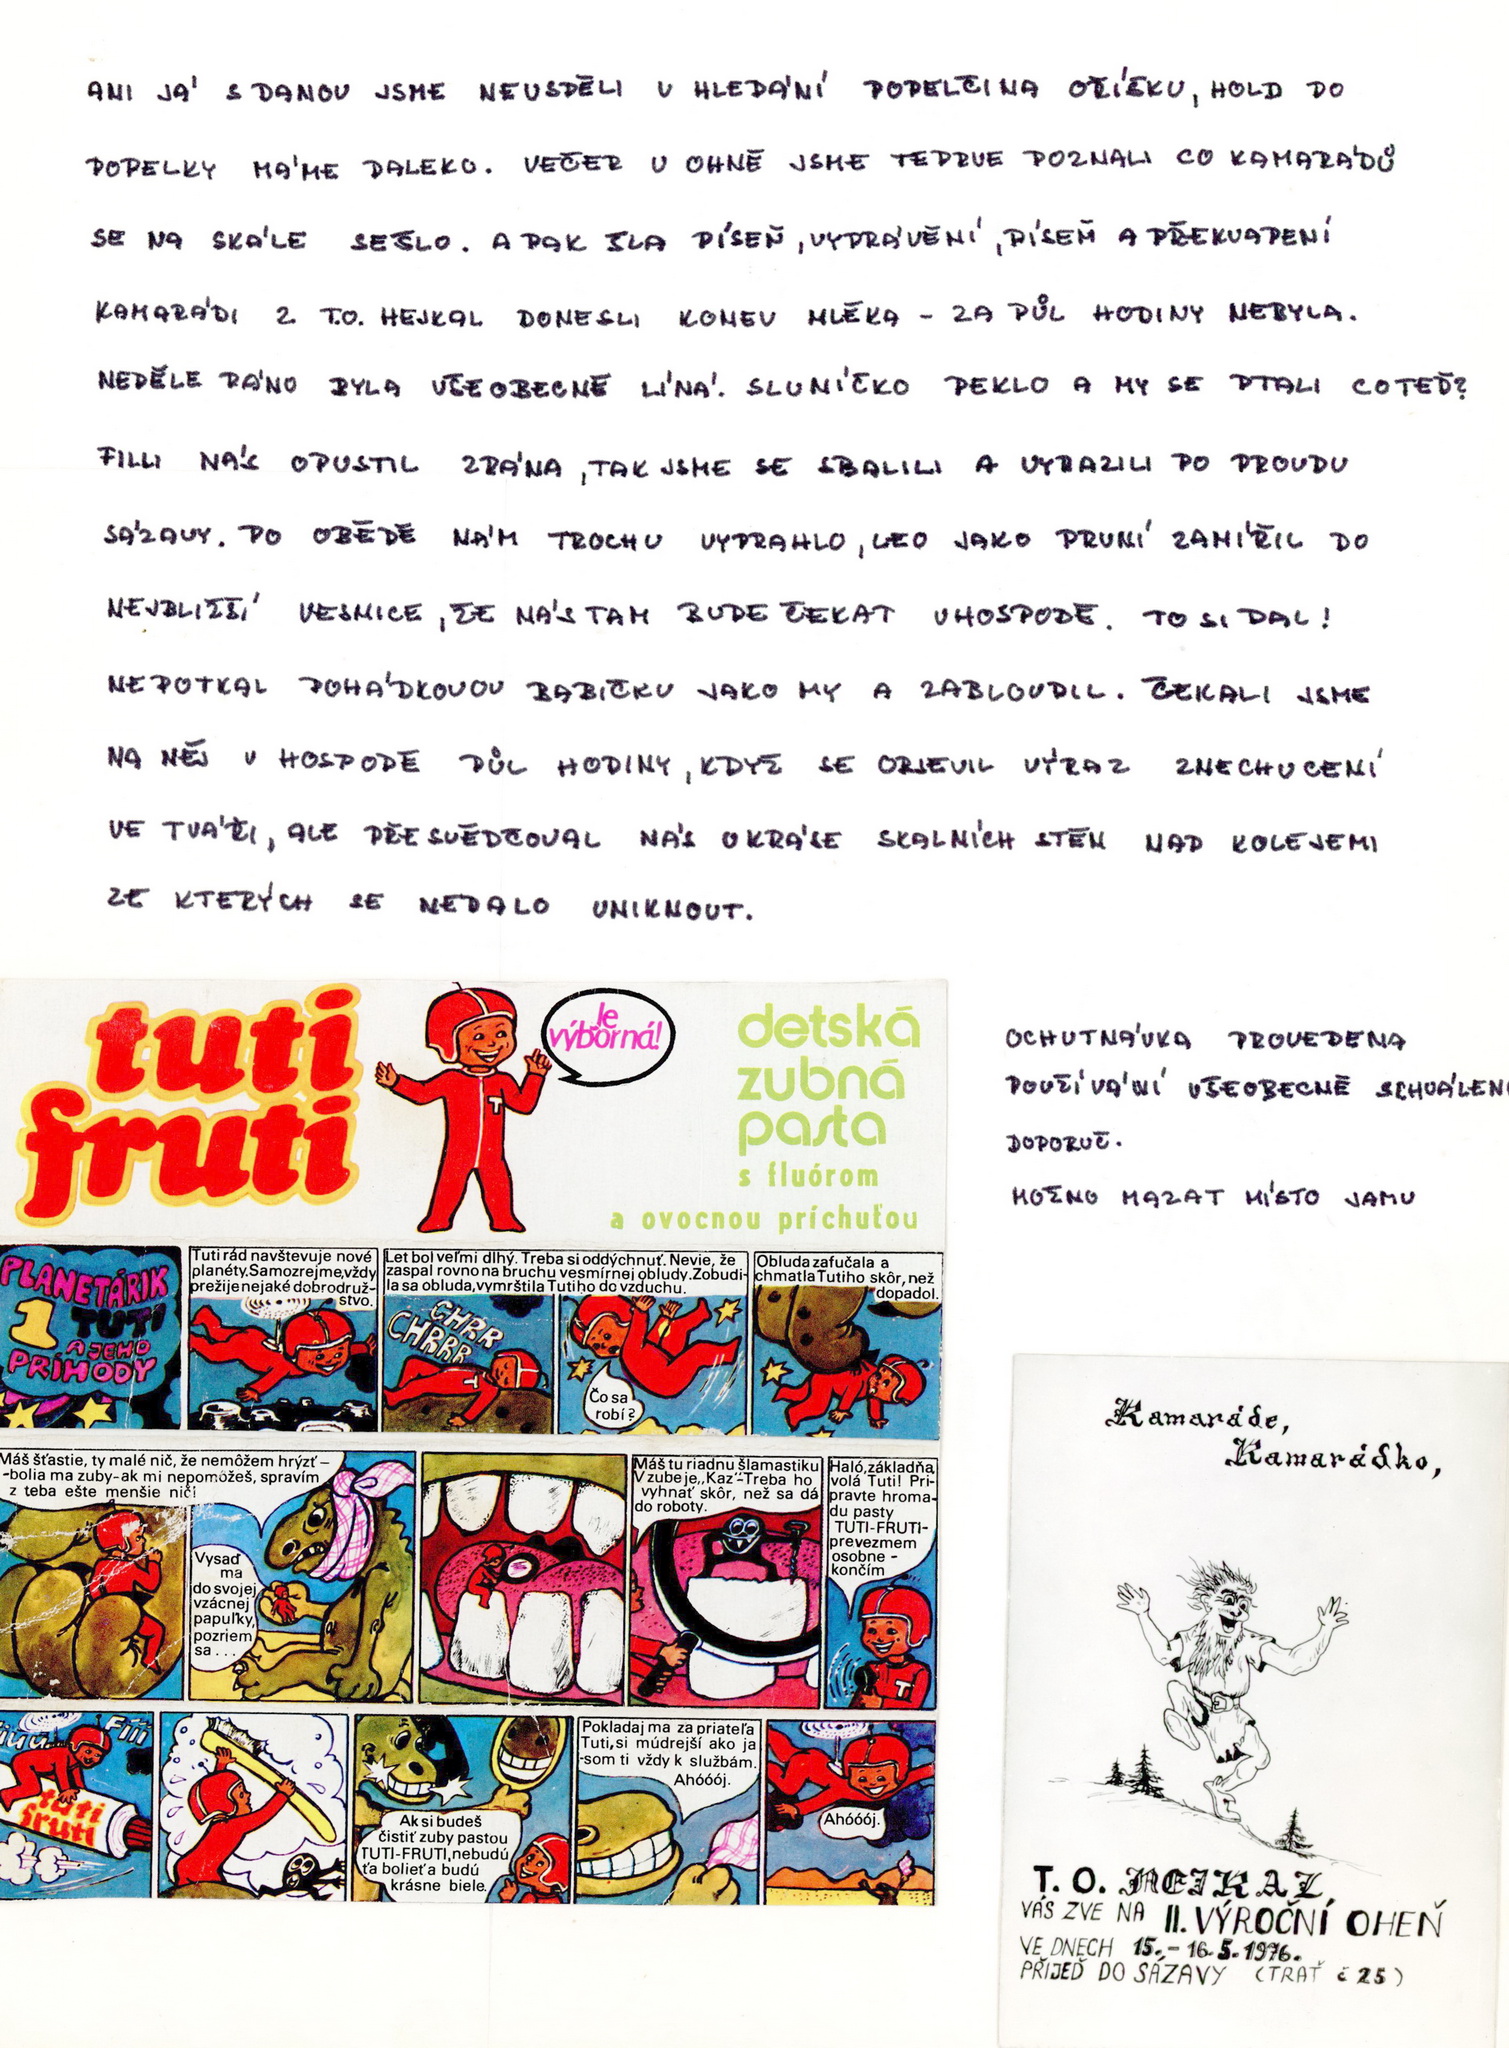 ANI JÁ S DANOU JSME NEUSPĚLI V HLEDÁNÍ POPELČINA OŘÍŠKU, HOLD DO
POPELKY MÁME DALEKO. VEČER U OHNĚ JSME TEPRVE POZNALI CO KAMARÁDŮ
SE NA SKÁLE SEŠLO. A PAK ŠLA PÍSEŇ, VYPRÁVĚNÍ, PÍSEŇ A PŘEKVAPENÍ
KAMARÁDI Z T.O. HEJKAL DONESLI KONEV MLÉKA - ZA PŮL HODINY NEBYLA.
NEDĚLE RÁNO BYLA VŠEOBECNĚ LÍNÁ. SLUNÍČKO PEKLO A MY SE PTALI CO TEĎ?
FILLI NÁS OPUSTIL ZRÁNA, TAK JSME SE SBALILI A VYRAZILI PO PROUDU
SÁZAVY. PO OBĚDĚ NÁM TROCHU VYPRAHLO, LEO JAKO PRVNÍ ZAMÍŘIL DO
NEJBLIŽŠÍ VESNICE, ŽE NÁS TAM BUDE ČEKAT V HOSPODĚ. TO SI DAL!
NEPOTKAL POHÁDKOVOU BABIČKU JAKO MY A ZABLOUDIL. ČEKALI JSME
NA NĚJ V HOSPODĚ PŮL HODINY, KDYŽ SE OBJEVIL VÝRAZ ZNECHUCENÍ
VE TVÁŘI, ALE PŘESVĚDČOVAL NÁS O KRÁSE SKALNÍCH STĚN NAD KOLEJEMI
ZE KTERÝCH SE NEDALO UNIKNOUT.
tuti
fruti
Je
výborná!
detská
zubná
pasta
s fluórom
a ovocnou príchuťou
OCHUTNÁVKA PROVEDENA
POUŽÍVÁNÍ VŠEOBECNĚ SCHVÁLEN
DOPORUČ.
MOŽNO MAZAT MÍSTO JAMU
PLANETÁRIK
1 TUTI
A JEHO
PRÍHODY
Tuti rád navštevuje nové
planéty. Samozrejme, vždy
prežije nejaké dobrodruž-
stvo.
Let bol veľmi dlhý. Treba si oddýchnuť. Nevie, že
zaspal rovno na bruchu vesmírnej obludy. Zobudi-
la sa obluda, vymrštila Tutiho do vzduchu.
CHRR
CHRRR
Čo sa
robí?
Obluda zafučala a
chmatla Tutiho skôr, než
dopadol.
Máš šťastie, ty malé nič, že nemôžem hrýzť –
-bolia ma zuby-ak mi nepomôžeš, spravím
z teba ešte menšie nič!
Vysaď
ma
do svojej
vzácnej
papuľky,
pozriem
sa...
Máš tu riadnu šlamastiku
V zube je „Kaz"-Treba ho
vyhnať skôr, než sa dá
do roboty.
Haló, základňa,
volá Tuti! Pri-
pravte hroma-
du pasty
TUTI-FRUTI-
prevezmem
osobne -
končím
Fííí
tuti
fruti
Ak si budeš
čistiť zuby pastou
TUTI-FRUTI, nebudú
ťa bolieť a budú
krásne biele.
Pokladaj ma za priateľa
Tuti, si múdrejší ako ja
-som ti vždy k službám.
Ahóóój.
Ahóóój.
Kamaráde,
Kamarádko,
T. O. HEJKAL,
VÁS ZVE NA II. VÝROČNÍ OHEŇ
VE DNECH 15.-16.5.1976.
PŘIJEĎ DO SÁZAVY (TRAŤ č 25)